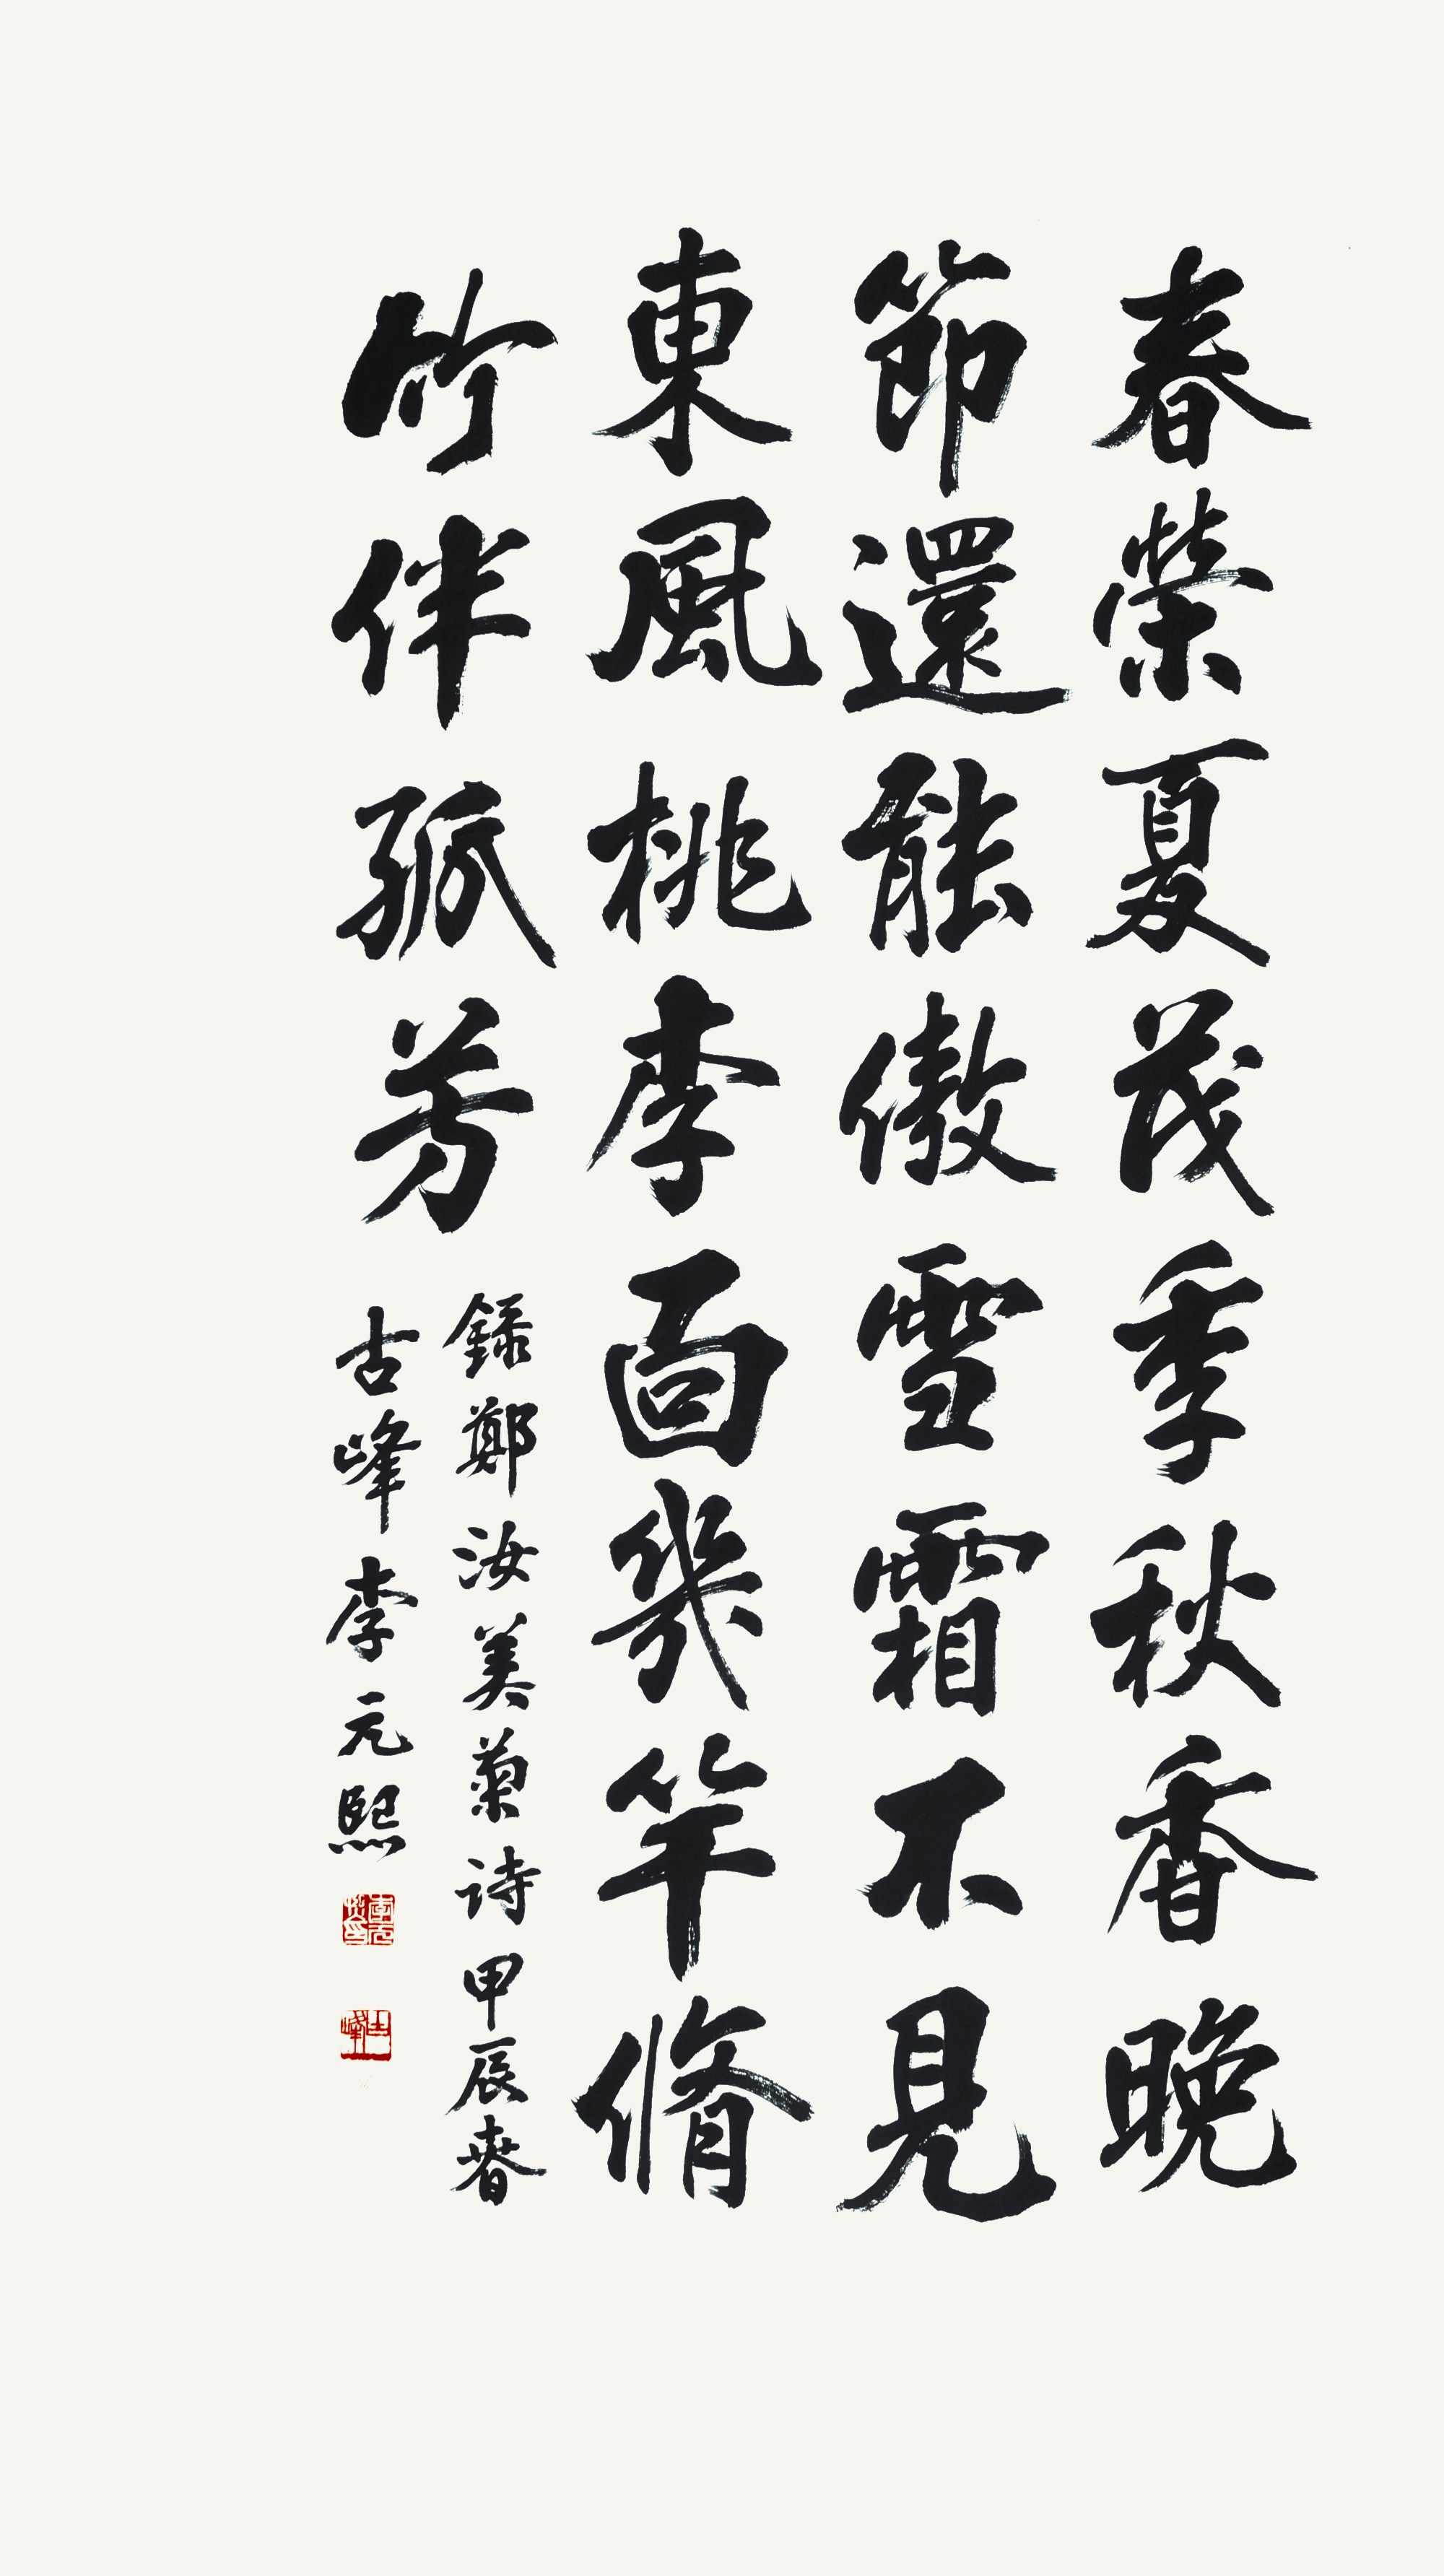 春榮夏茂季秋香晚
節還能傲雪霜不見
東風桃李面幾竿脩
竹伴孤芳
錄鄭汝美菊诗甲辰春
古峰李元熙
李元熙印
古峰